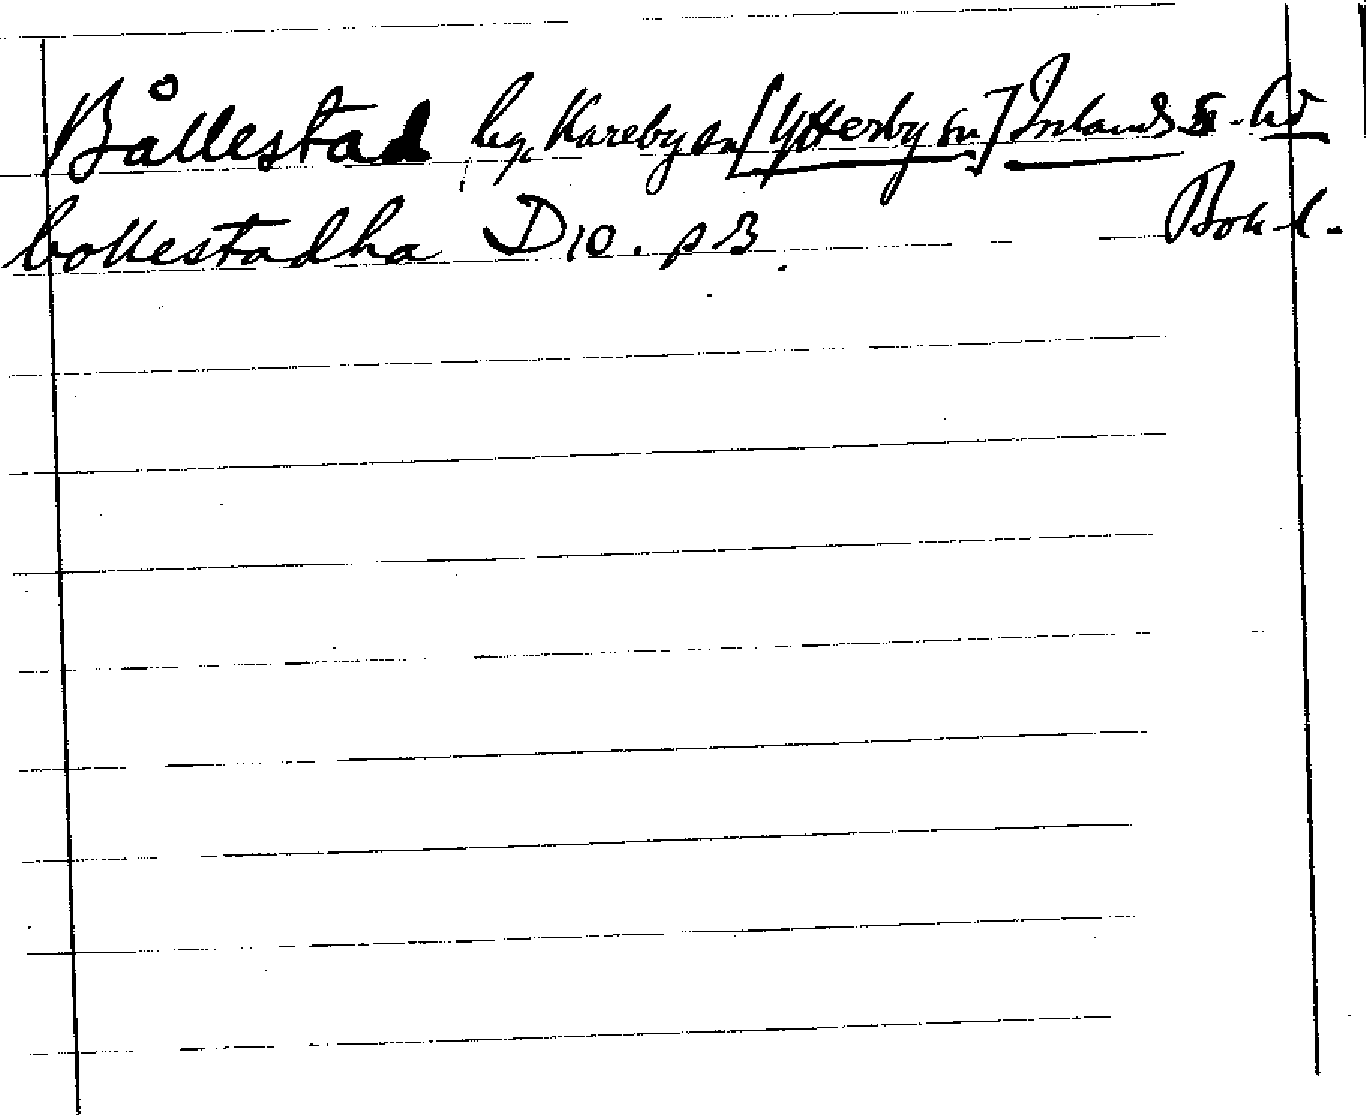 Bållestad hg. Kareby sn [Ytterby sn] Inlands S. hd
bollestadha D 10. p 3. Boh. l.